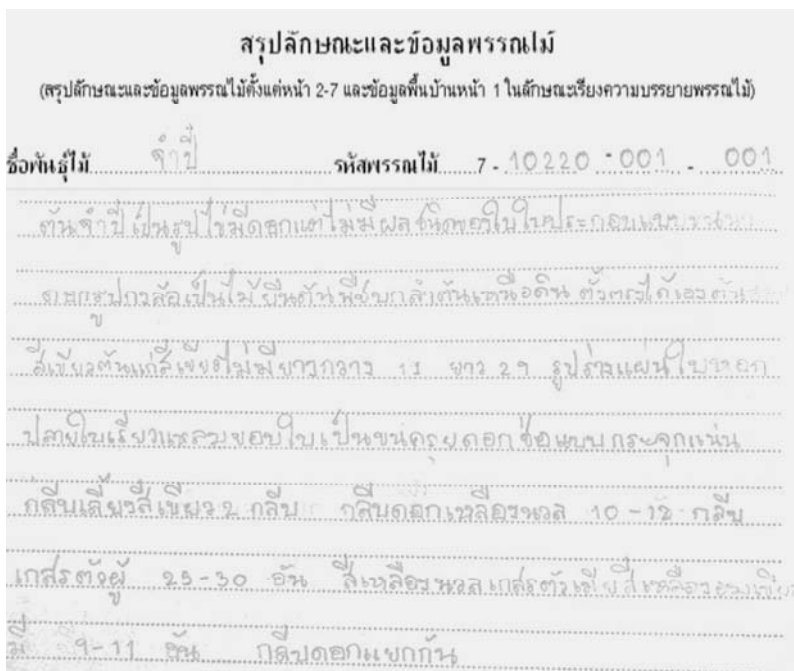 สรุปลักษณะและข้อมูลพรรณไม้
(สรุปลักษณะและข้อมูลพรรณไม้ตั้งแต่หน้า 2-7 และข้อมูลพื้นบ้านหน้า 1 ในลักษณะเรียงความบรรยายพรรณไม้)
ชื่อพันธุ์ไม้ จำปี รหัสพรรณไม้ 7 - 10220 - 001 - 001
ต้นจำปีเป็นรูปไข่มีดอกแต่ไม่มีผล ชนิดของใบใบประกอบแบบ
รูปกรวล้อเป็นไม้ยืนต้น พืชบกลำต้นเหนือดิน ตั้งตรงได้เอง ต้น
สีเขียวต้นแก่สีเขียวไม่มียางกวาง 11 ยาว 29 รูปร่างแผ่นใบหอก
ปลายใบเรียวแหลมขอบใบเป็นขนครุยดอกช่อแบบกระจุกแน่น
กลีบเลี้ยงสีเขียว 2 กลีบ กลีบดอกเหลืองนวล 10-12 กลีบ
เกสรตัวผู้ 25-30 อัน สีเหลืองนวลเกสรตัวเมียสีเหลืองอมเขียว
มี 9-11 อัน กลีบดอกแยกกัน